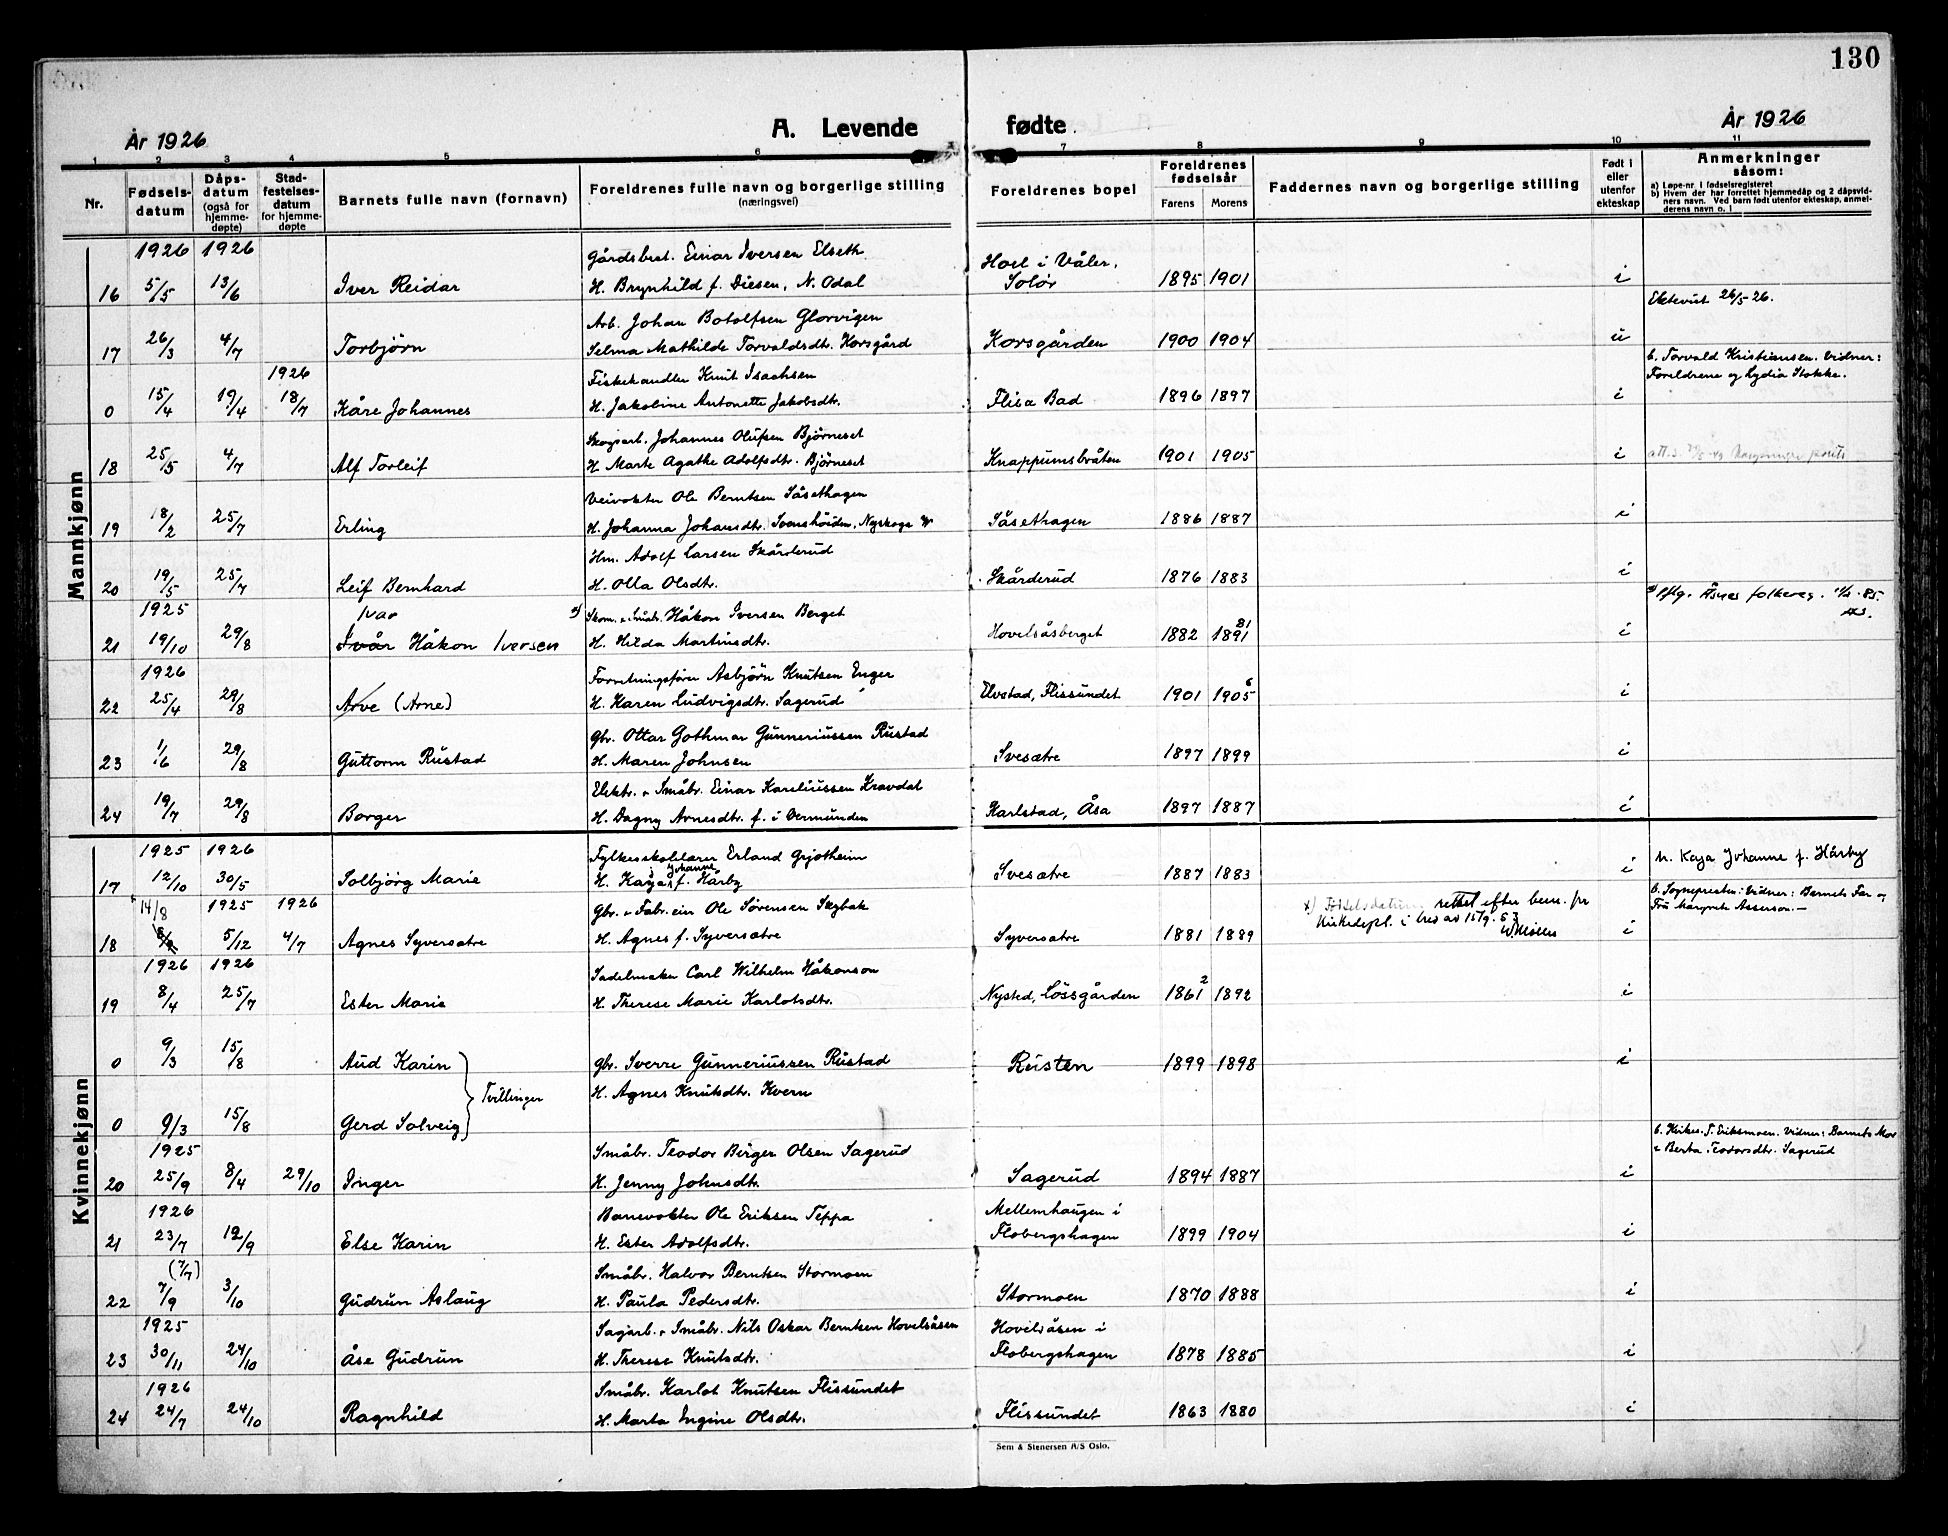 130
År 1926
A. Levende fødte
År 1926
1 2 3 4 5 6 7 8 9 10 11
Nr. | Fødsels-datum | Dåps-datum (også for hjemme-døpte) | Stad-festelses-datum for hjemme-døpte | Barnets fulle navn (fornavn) | Foreldrenes fulle navn og borgerlige stilling (næringsvei) | Foreldrenes bopel | Foreldrenes fødselsår Farens Morens | Faddernes navn og borgerlige stilling | Født i eller utenfor ekteskap | Anmerkninger såsom: a) Løpe-nr. i fødselsregisteret b) Hvem der har forrettet hjemmedåp og 2 dåpsvidners navn. Ved barn født utenfor ekteskap, anmelderens navn o. l.
Mannkjønn
1926 1926 Gårdsbest. Einar Iversen Elseth Hoel i Våler,
16 5/5 13/6 Iver Reidar H. Brynhild f. Diesen, N. Odal Solør 1895 1901 i
Ektevist 26/5-26.
Arb. Johan Botolfsen Glorvigen
17 26/3 4/7 Torbjørn Selma Mathilde Torvaldsdtr. Korsgård Korsgården 1900 1904 u
b. Torvald Kristiansen. Vidner:
1926 Fiskehandler Knut Isachsen Foreldrene og Lydia Stokke.
0 15/4 19/4 18/7 Kåre Johannes H. Jakobine Antonette Jakobsdtr. Flisa Bad 1896 1897 i
Skogsarb. Johannes Olufsen Bjørneset
18 25/5 4/7 Alf Torleif H. Marte Agathe Adolfsdtr. Bjørneset Knappumsbråten 1901 1905 i
Veivokter Ole Berntsen Såsethagen
19 18/2 25/7 Erling H. Johanna Johansdtr. Svenshöiden, Nyskoga Såsethagen 1886 1887 i
Hm. Adolf Larsen Skårderud
20 19/5 25/7 Leif Bernhard H. Olla Olsdtr. Skårderud 1876 1883 i
1925 Ivar Skom. & Småbr. Håkon Iversen Berget Åsnes folkereg.
21 19/10 29/8 Ivår Håkon Iversen H. Hilda Martinsdtr. Hovelsåsberget 1882 1891 81 i
1926 Forretningsfører Asbjørn Knutsen Enger
22 25/4 29/8 Arve (Arne) H. Karen Ludvigsdtr. Sagerud Elvstad, Flissundet 1901 1905 6 i
Gbr. Ottar Gothmar Gunneriussen Rustad
23 1/6 29/8 Guttorm Rustad H. Maren Johnsen Svesætre 1897 1899 i
Elektr. & Småbr. Einar Kareliussen Kravdal
24 19/7 29/8 Borger H. Dagny Arnesdtr. f. i Vermunden Karlstad, Åsa 1897 1887 i
Kvinnekjønn
1925 1926 Fylkesskolelærer Erland Grjotheim
17 12/10 30/5 Solbjørg Marie H. Kaja Johanne f. Hårby Svesætre 1887 1883 i
M. Kaja Johanne f. Hårby
14/8 1925 1926 Gbr. & Fabr.eier Ole Sørensen Skybak
x) Fødselsdatum rettet efter bem. fr
18 5/12 4/7 Agnes Syversætre H. Agnes f. Syversætre Syversætre 1881 1889 i
b. Sognepresten: Vidner: Barnets Far og
Fru Margrete Asserson.—
1926 1926 Sadelmaker Carl Wilhelm Håkonson
19 8/4 25/7 Ester Marie H. Therese Marie Karlotsdtr. Nysted, Lössgården 1861 2 1892 i
0 9/3 15/8 Aud Karin Gbr. Sverre Gunneriussen Rustad Rusten 1899 1898 i
Tvillinger H. Agnes Knutsdtr. Kvern
0 9/3 15/8 Gerd Solveig
b. Kirkes. T. Eriksmoen. Vidner: Barnets Mor
1925 Småbr. Teodor Birger Olsen Sagerud & Berta Teodorsdtr. Sagerud
20 25/9 8/4 29/10 Inger H. Jenny Johnsdtr. Sagerud 1894 1887 i
1926 Banevokter Ole Eriksen Teppa Mellemhaugen i
21 23/7 12/9 Else Karin H. Ester Adolfsdtr. Flobergshagen 1899 1904 i
(7/7) Småbr. Halvor Berntsen Stormoen
22 7/9 3/10 Gudrun Aslaug H. Paula Pedersdtr. Stormoen 1870 1888 i
1925 Sagarb. & Småbr. Nils Oskar Berntsen Hovelsåsen Hovelsåsen i
23 30/11 24/10 Åse Gudrun H. Therese Knutsdtr. Flobergshagen 1878 1885 i
1926 Småbr. Karlot Knutsen Flissundet
24 24/7 24/10 Ragnhild H. Marta Ingine Olsdtr. Flissundet 1863 1880 i
Sem & Stenersen A/S Oslo.